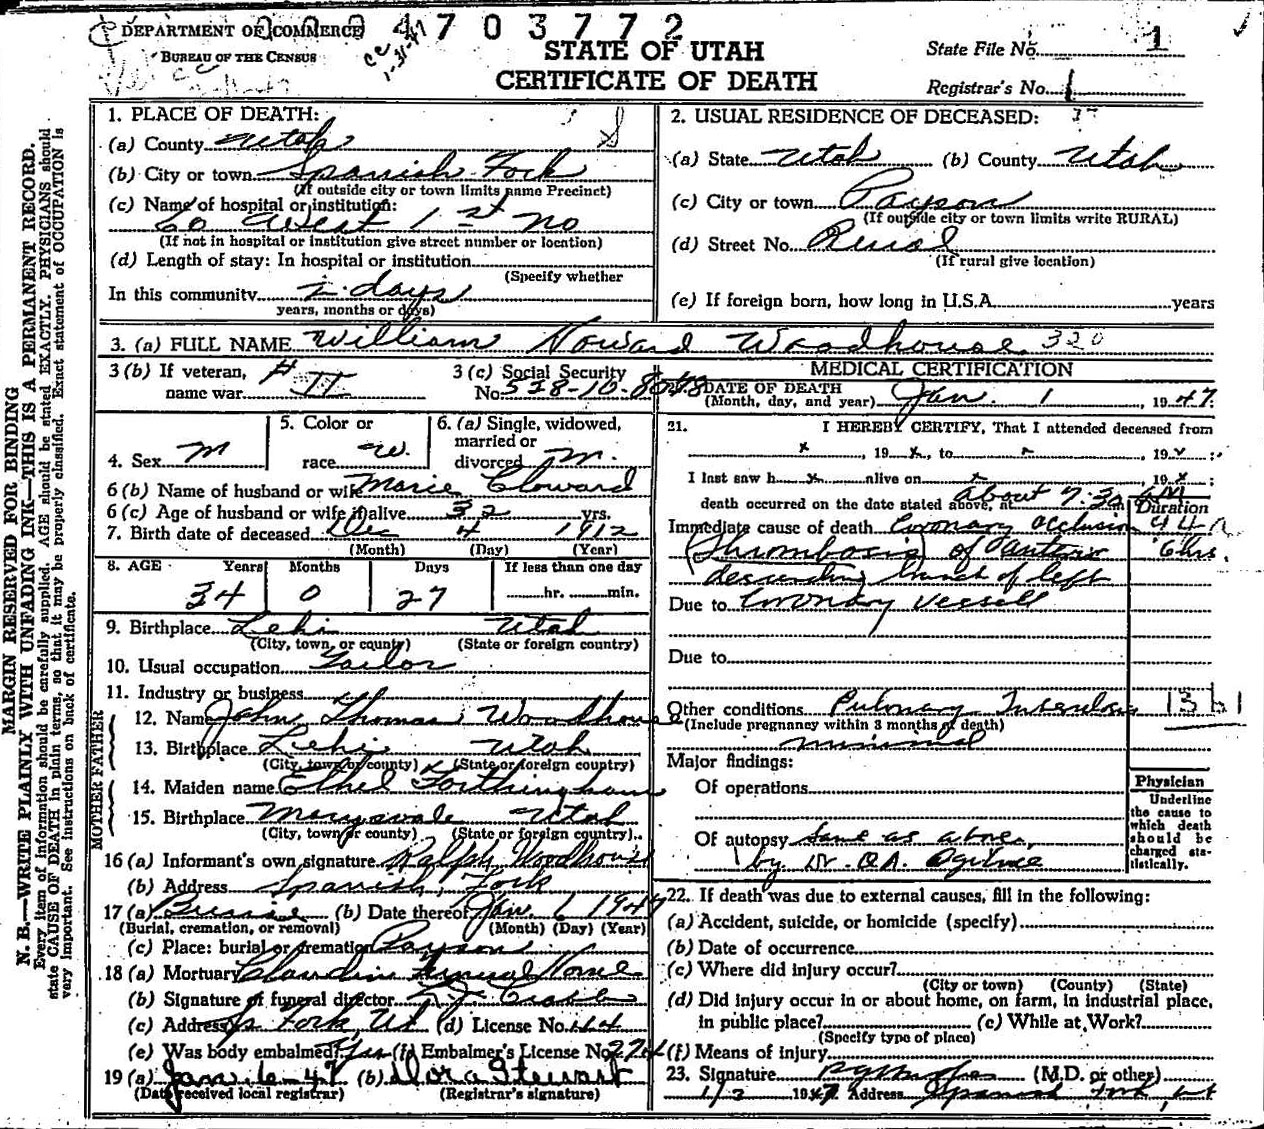 DEPARTMENT OF COMMERCE
BUREAU OF THE CENSUS
4703772
cc 1-31-47
STATE OF UTAH
CERTIFICATE OF DEATH
State File No. 1
Registrar's No. 1
MARGIN RESERVED FOR BINDING
N. B.—WRITE PLAINLY WITH UNFADING INK—THIS IS A PERMANENT RECORD.
Every item of information should be carefully supplied. AGE should be stated EXACTLY. PHYSICIANS should
state CAUSE OF DEATH in plain terms, so that it may be properly classified. Exact statement of OCCUPATION is
very important. See instructions on back of certificate.
1. PLACE OF DEATH:
(a) County Utah
(b) City or town Spanish Fork
(If outside city or town limits name Precinct)
(c) Name of hospital or institution:
60 West 1st No
(If not in hospital or institution give street number or location)
(d) Length of stay: In hospital or institution
(Specify whether
In this community 2 days
years, months or days)
2. USUAL RESIDENCE OF DECEASED:
(a) State Utah (b) County Utah
(c) City or town Payson
(If outside city or town limits write RURAL)
(d) Street No. Rural
(If rural give location)
(e) If foreign born, how long in U.S.A. years
3. (a) FULL NAME William Howard Woodhouse 320
3 (b) If veteran, name war # II
3 (c) Social Security No.
4. Sex M
5. Color or race W.
6. (a) Single, widowed, married or divorced M.
6 (b) Name of husband or wife Marie Cloward
6 (c) Age of husband or wife if alive 32 yrs.
7. Birth date of deceased Dec 4 1912
(Month) (Day) (Year)
8. AGE Years Months Days If less than one day
34 0 27 hr. min.
9. Birthplace Lehi Utah
(City, town, or county) (State or foreign country)
10. Usual occupation Tailor
11. Industry or business
FATHER
12. Name John Thomas Woodhouse
13. Birthplace Lehi Utah
(City, town or county) (State or foreign country)
MOTHER
14. Maiden name Ethel Forthingham
15. Birthplace Marysvale Utah
(City, town or county) (State or foreign country)
16 (a) Informant's own signature Ralph Woodhouse
(b) Address Spanish Fork
17 (a) Burial (b) Date thereof Jan. 6 1947
(Burial, cremation, or removal) (Month) (Day) (Year)
(c) Place: burial or cremation Payson
18 (a) Mortuary Claudin Funeral Home
(b) Signature of funeral director
(c) Address Sp Fork, Ut (d) License No. 164
(e) Was body embalmed? Yes (f) Embalmer's License No. 
19 (a) Jan. 6-47 (b) Dora Stewart
(Date received local registrar) (Registrar's signature)
MEDICAL CERTIFICATION
20. DATE OF DEATH
(Month, day, and year) Jan. 1, 1947.
21. I HEREBY CERTIFY, That I attended deceased from
x, 19 x, to x, 19 x;
I last saw h x alive on x 19 x;
death occurred on the date stated above, at about 7:30 AM
Duration
Immediate cause of death Coronary occlusion 94a
(Thrombosis) of anterior 6 hrs.
descending branch of left
Due to Coronary vessell
Due to
Other conditions Pulmonary Tuberculosis 13b1
(Include pregnancy within 3 months of death)
minimal
Major findings:
Of operations
Of autopsy same as above,
by Dr. O.A. Ogilvie
Physician
Underline the cause to which death should be charged statistically.
22. If death was due to external causes, fill in the following:
(a) Accident, suicide, or homicide (specify)
(b) Date of occurrence
(c) Where did injury occur?
(City or town) (County) (State)
(d) Did injury occur in or about home, on farm, in industrial place,
in public place? (e) While at Work?
(Specify type of place)
(f) Means of injury
23. Signature (M.D. or other)
1/2 1947 Address Spanish Fork, Ut